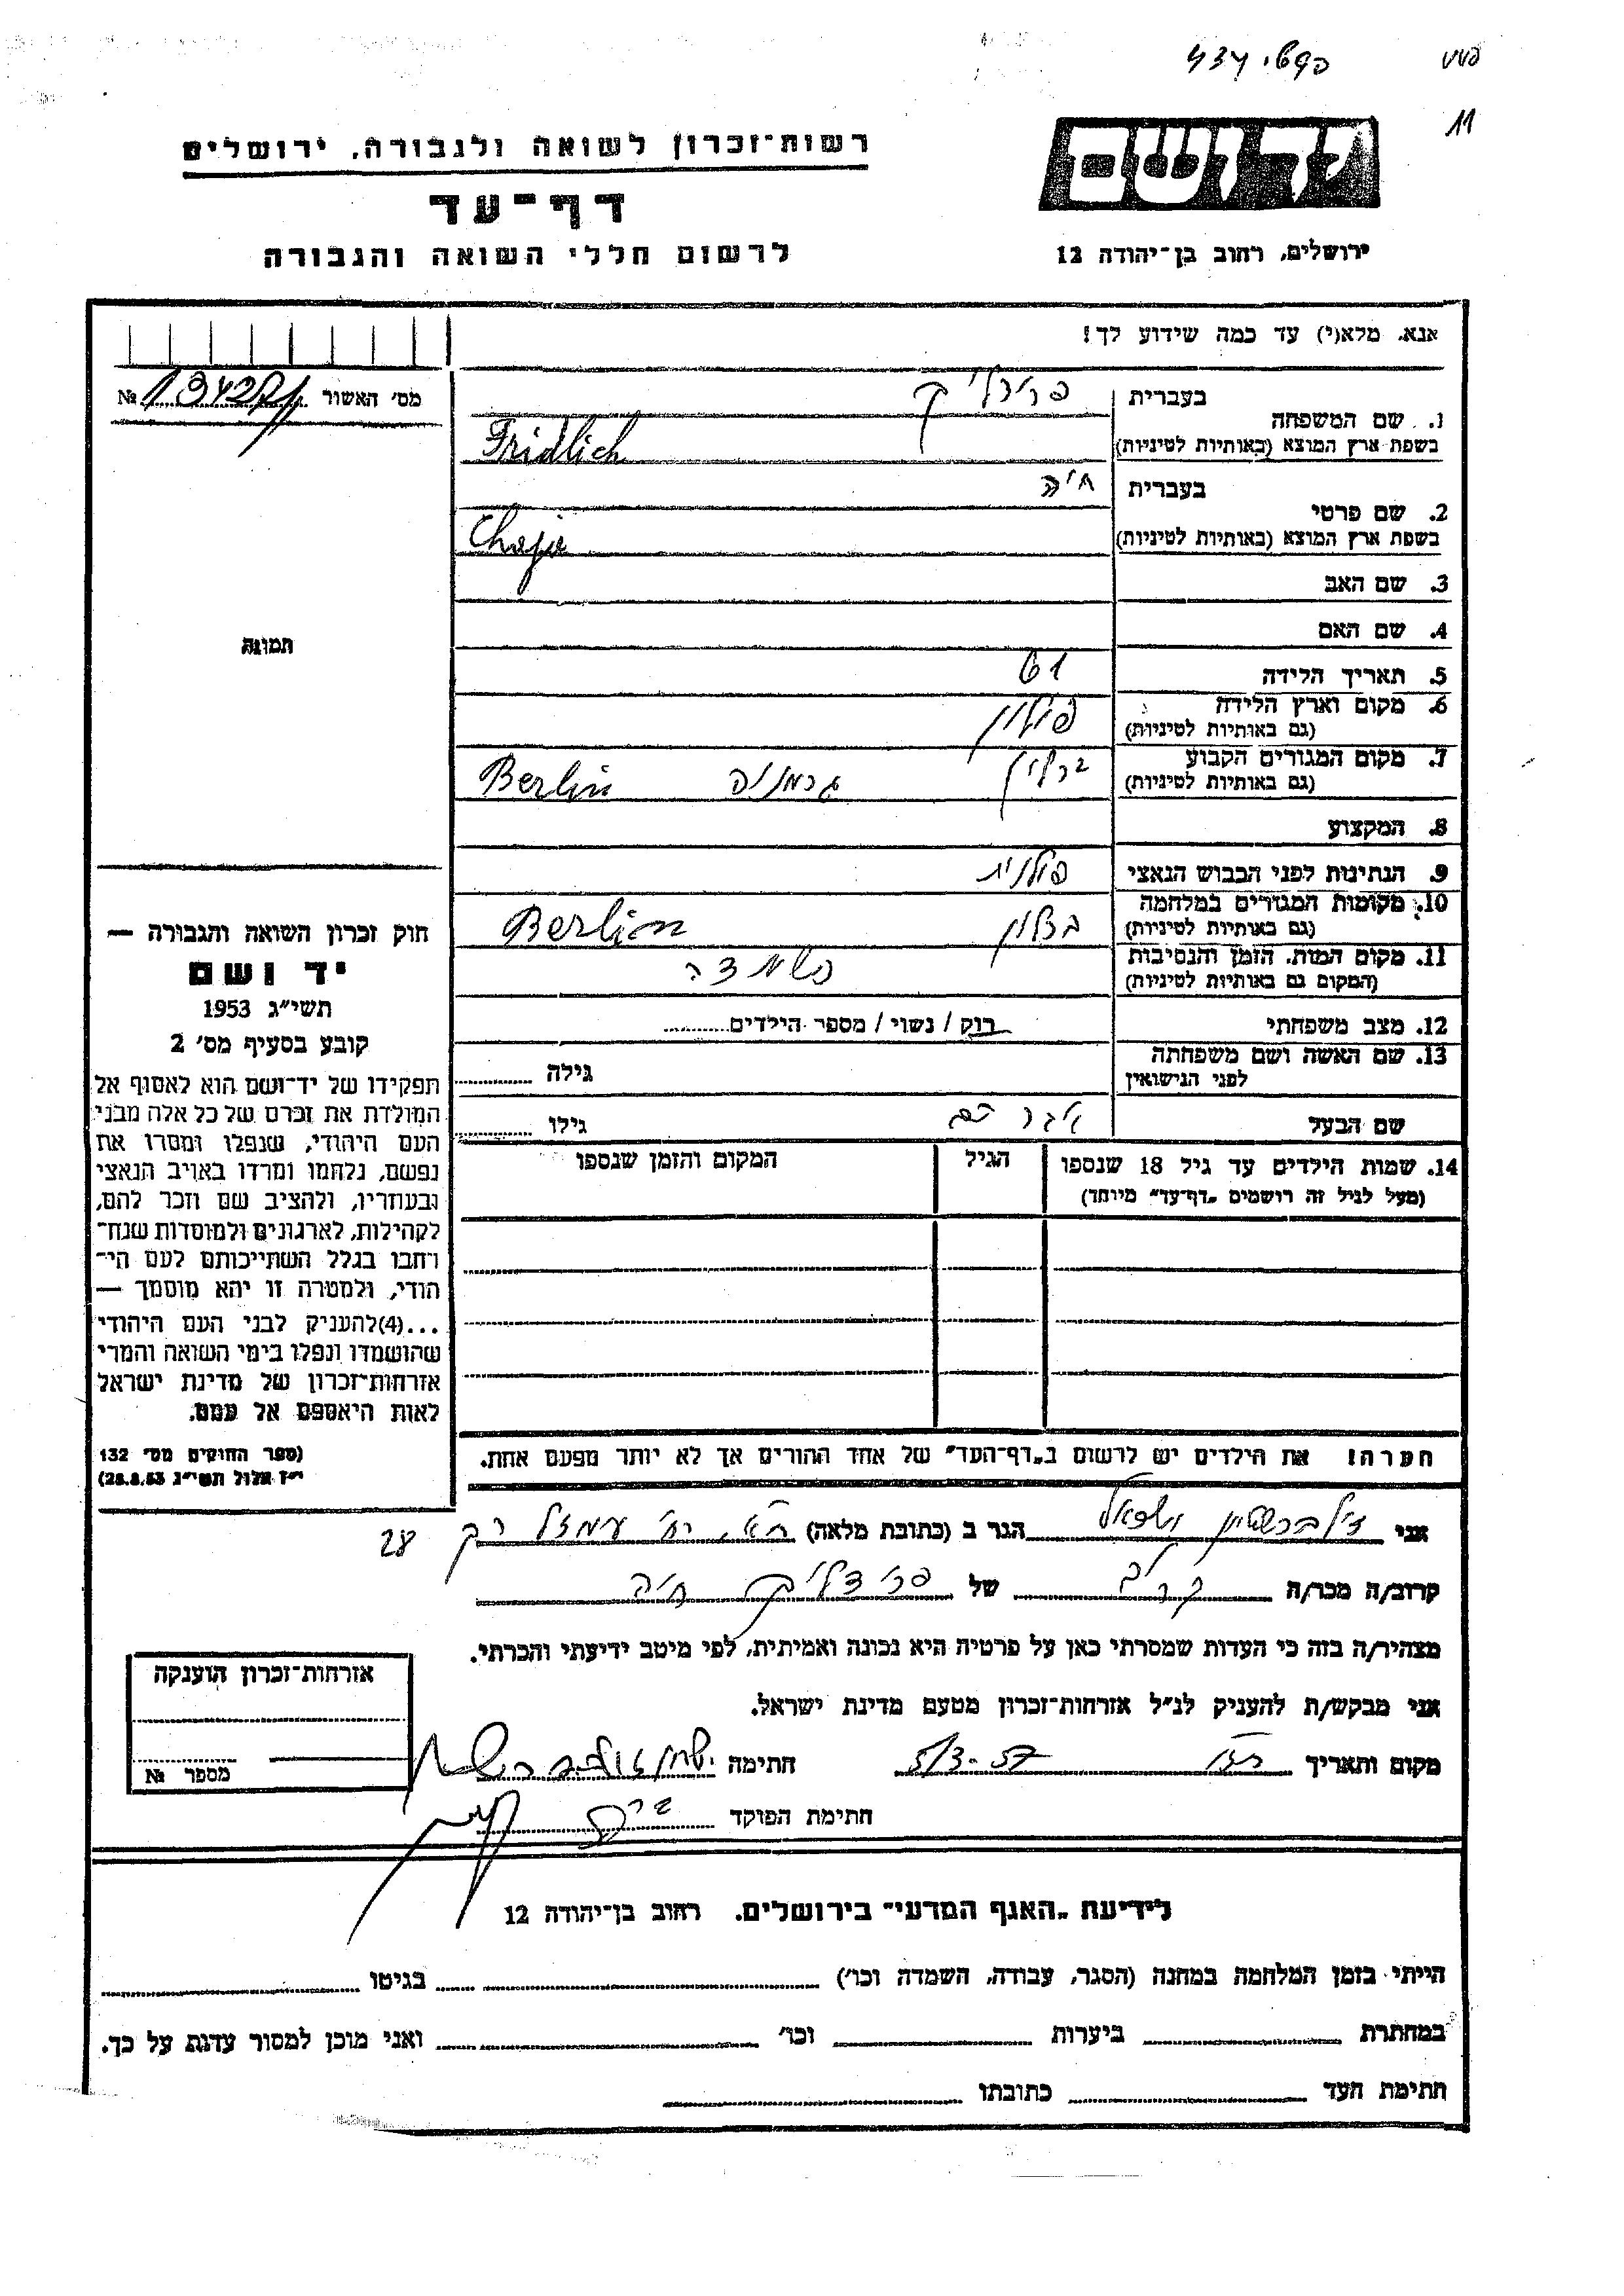 11
רשות־זכרון לשואה ולגבורה, ירושלים
יד ושם
דף־עד
לרשום חללי השואה והגבורה
ירושלים, רחוב בן־יהודה 12
אנא, מלא(י) עד כמה שידוע לך!
מס׳ האשור №
1. שם המשפחה
בעברית
בשפת ארץ המוצא (באותיות לטיניות) Fridlich
2. שם פרטי
בעברית חיה
בשפת ארץ המוצא (באותיות לטיניות) Chaja
3. שם האב
4. שם האם
תמונה
5. תאריך הלידה 61
6. מקום וארץ הלידה פולין
(גם באותיות לטיניות)
7. מקום המגורים הקבוע ברלין גרמניה Berlin
(גם באותיות לטיניות)
8. המקצוע
9. הנתינות לפני הכבוש הנאצי פולנית
10. מקומות המגורים במלחמה ברלין Berlin
(גם באותיות לטיניות)
11. מקום המות, הזמן והנסיבות השמדה
(המקום גם באותיות לטיניות)
12. מצב משפחתי רוק / נשוי / מספר הילדים
13. שם האשה ושם משפחתה
לפני הנישואין
גילה
שם הבעל
גילו
14. שמות הילדים עד גיל 18 שנספו
(מעל לגיל זה רושמים „דף־עד” מיוחד)
הגיל
המקום והזמן שנספו
הערה! את הילדים יש לרשום ב„דף־העד” של אחד ההורים אך לא יותר מפעם אחת.
חוק זכרון השואה והגבורה —
יד ושם
תשי״ג 1953
קובע בסעיף מס׳ 2
תפקידו של יד־ושם הוא לאסוף אל
המולדת את זכרם של כל אלה מבני
העם היהודי, שנפלו ומסרו את
נפשם, נלחמו ומרדו באויב הנאצי
ובעוזריו, ולהציב שם וזכר להם,
לקהילות, לארגונים ולמוסדות שנח־
רחבו בגלל השתייכותם לעם הי־
הודי, ולמטרה זו יהא מוסמך —
...(4)להעניק לבני העם היהודי
שהושמדו ונפלו בימי השואה והמרי
אזרחות־זכרון של מדינת ישראל
לאות היאספם אל עמם.
(ספר החוקים מס׳ 132
י״ז אלול תשי״ג 28.8.53)
אני זילברשטיין הגר ב (כתובת מלאה) 28
קרוב/ה מכר/ה קרוב של פרידליך חיה
מצהיר/ה בזה כי העדות שמסרתי כאן על פרטיה היא נכונה ואמיתית, לפי מיטב ידיעתי והכרתי.
אני מבקש/ת להעניק לנ״ל אזרחות־זכרון מטעם מדינת ישראל.
מקום ותאריך 5/3-57 חתימה
חתימת הפוקד
אזרחות־זכרון הוענקה
מספר №
לידיעת „האגף המדעי” בירושלים. רחוב בן־יהודה 12
הייתי בזמן המלחמה במחנה (הסגר, עבודה, השמדה וכו׳) בגיטו
במחתרת ביערות וכו׳ ואני מוכן למסור עדות על כך.
חתימת העד כתובתו